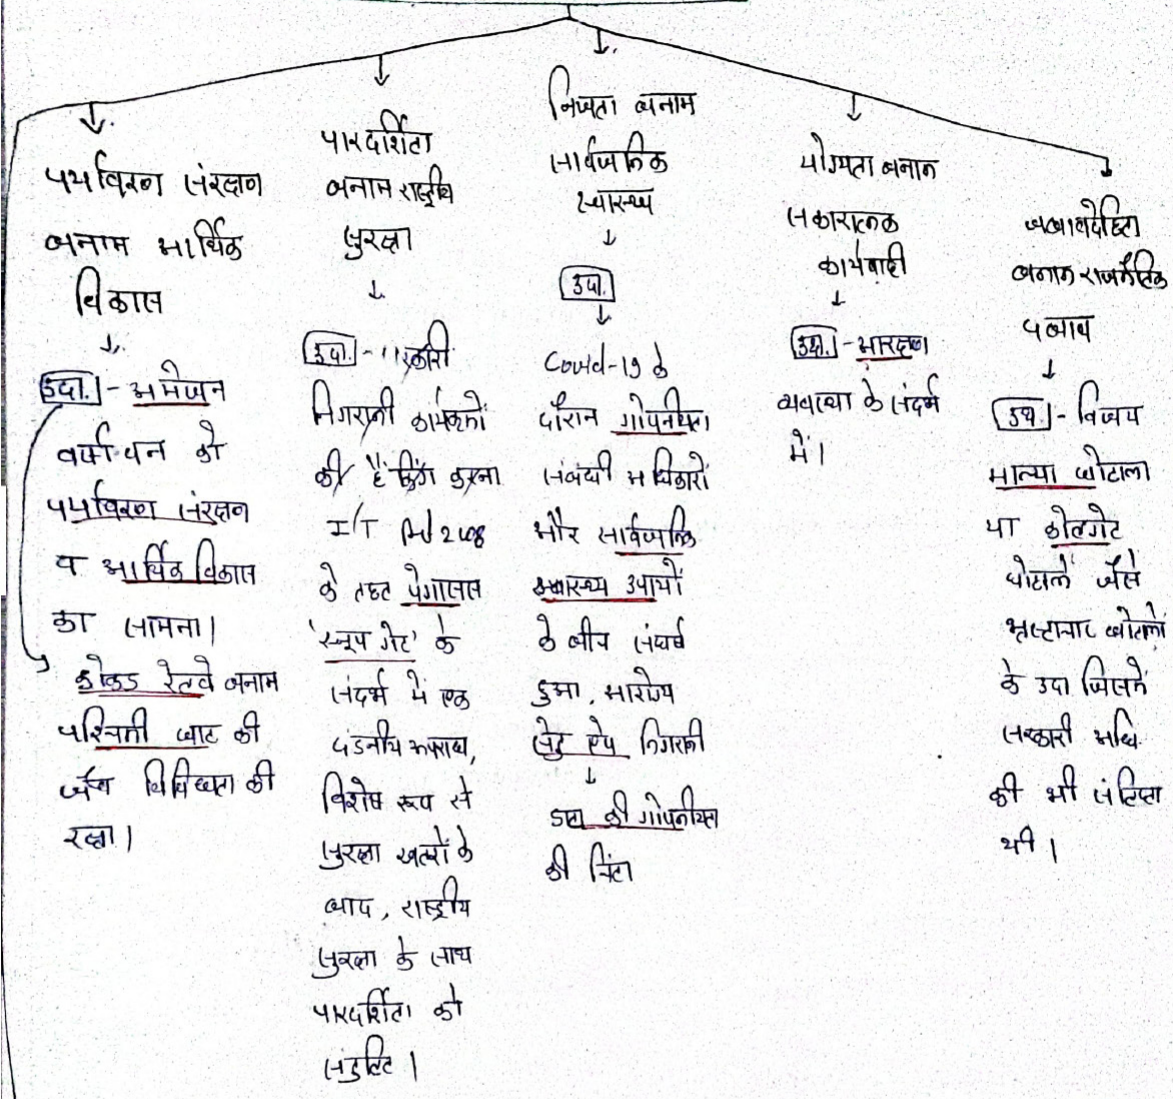 पर्यावरण संरक्षण
बनाम आर्थिक
विकास
उदा. - अमेजन
वर्षा वन को
पर्यावरण संरक्षण
व आर्थिक विकास
का सामना।
कोंकड रेलवे बनाम
पश्चिमी घाट की
जैव विविधता की
रक्षा।
पारदर्शिता
बनाम राष्ट्रीय
सुरक्षा
उदा. - सरकारी
निगरानी कार्यक्रमों
की हैकिंग करना
I/T 2008
के तहत पेगासस
'स्नूप गेट' के
संदर्भ में एक
दंडनीय अपराध,
विशेष रूप से
सुरक्षा खतरों के
बाद, राष्ट्रीय
सुरक्षा के साथ
पारदर्शिता को
संतुलित।
निजता बनाम
सार्वजनिक
स्वास्थ्य
उदा.
Covid-19 के
दौरान गोपनीयता
संबंधी अधिकारों
और सार्वजनिक
स्वास्थ्य उपायों
के बीच संघर्ष
हुआ, आरोग्य
सेतु ऐप निगरानी
डाटा की गोपनीयता
की चिंता
योग्यता बनाम
सकारात्मक
कार्यवाही
उदा. - आरक्षण
व्यवस्था के संदर्भ
में।
जबावदेहिता
बनाम राजनैतिक
दबाव
उदा. - विजय
माल्या घोटाला
या कोलगेट
घोटाले जैसे
भ्रष्टाचार घोटालों
के उदा जिसमें
सरकारी अधि.
की भी संलिप्तता
थी।